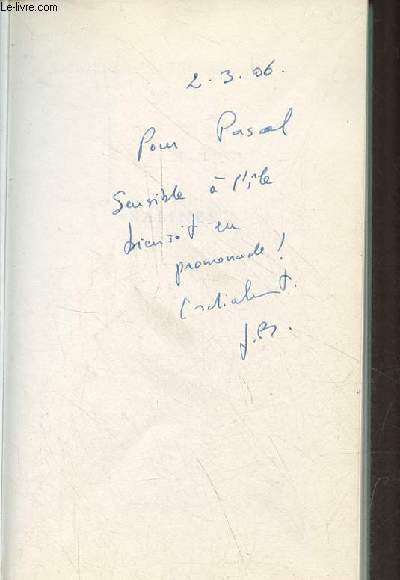 Le-livre.com
2.3.06.
Pour Pascal
Sensible à l'île
bientôt en
promenade!
Cordialement.
J.B.